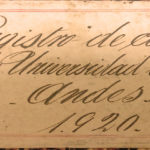 Registro de
Universidad
Andes-
1.920.